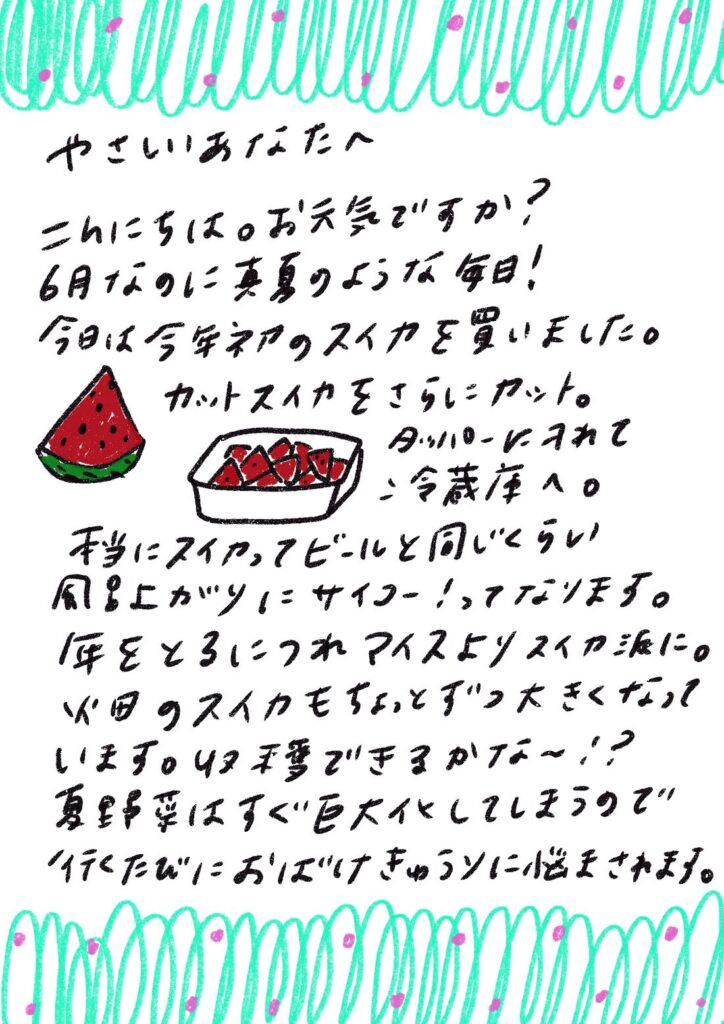 やさしいあなたへ
こんにちは。お元気ですか?
6月なのに真夏のような毎日!
今日は今年初のスイカを買いました。
カットスイカをさらにカット。
タッパーに入れて
冷蔵庫へ。
本当にスイカってビールと同じくらい
風呂上がりにサイコー!ってなります。
年をとるにつれアイスよりスイカ派に。
畑のスイカもちょっとずつ大きくなって
います。収穫できるかな〜!?
夏野菜はすぐ巨大化してしまうので
行くたびにおばけきゅうりに悩まされます。